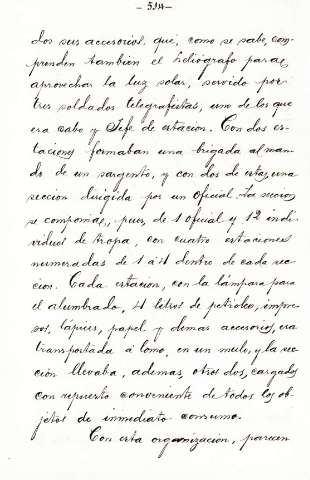 - 514 -
dos sus accesorios, que, como se sabe, com-
prenden tambien el heliógrafo para
aprovechar la luz solar, servido por
tres soldados telegrafistas, uno de los que
era cabo y Jefe de estacion. Con dos es-
taciones formaban una brigada al man-
do de un sargento, y con dos de estas, una
sección dirigida por un oficial. La sección
se componia, pues, de 1 oficial y 12 indi-
viduos de tropa, con cuatro estaciones
numeradas de 1 á 4 dentro de cada sec-
cion. Cada estacion, con la lámpara para
el alumbrado, 4 litros de petroleo, impre-
sos, lápices, papel y demas accesorios, era
transportada á lomo, en un mulo, y la sec-
ción llevaba, ademas, otros dos, cargados
con repuesto conveniente de todos los ob-
jetos de inmediato consumo.
Con esta organización, parecen